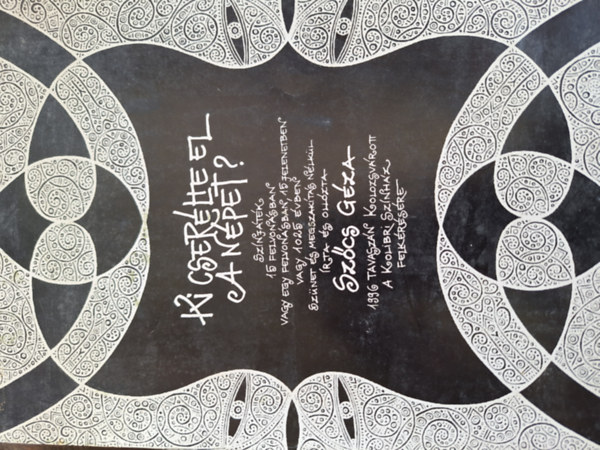 KI CSERÉLTE EL
A NÉPET?
SZÍNJÁTÉK
15 FELVONÁSBAN
VAGY EGY FELVONÁSBAN, 15 JELENETBEN
VAGY 1025 ÉVBEN
SZÜNET ÉS MEGSZAKÍTÁS NÉLKÜL
ÍRJA ÉS OLLÓZTA
SZŐCS GÉZA
1996 TAVASZÁN KOLOZSVÁROTT
A KOLIBRI SZÍNHÁZ
FELKÉRÉSÉRE